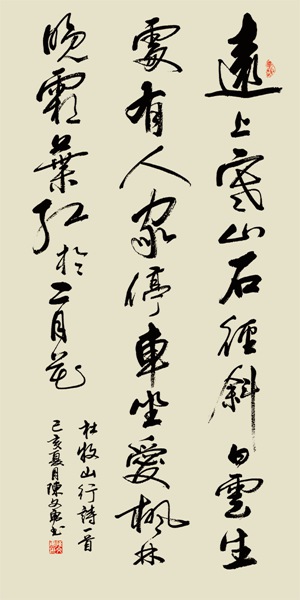 遠上寒山石徑斜白雲生
處有人家停車坐愛楓林
晚霜葉紅於二月花
杜牧山行詩一首
己亥夏月陳文書